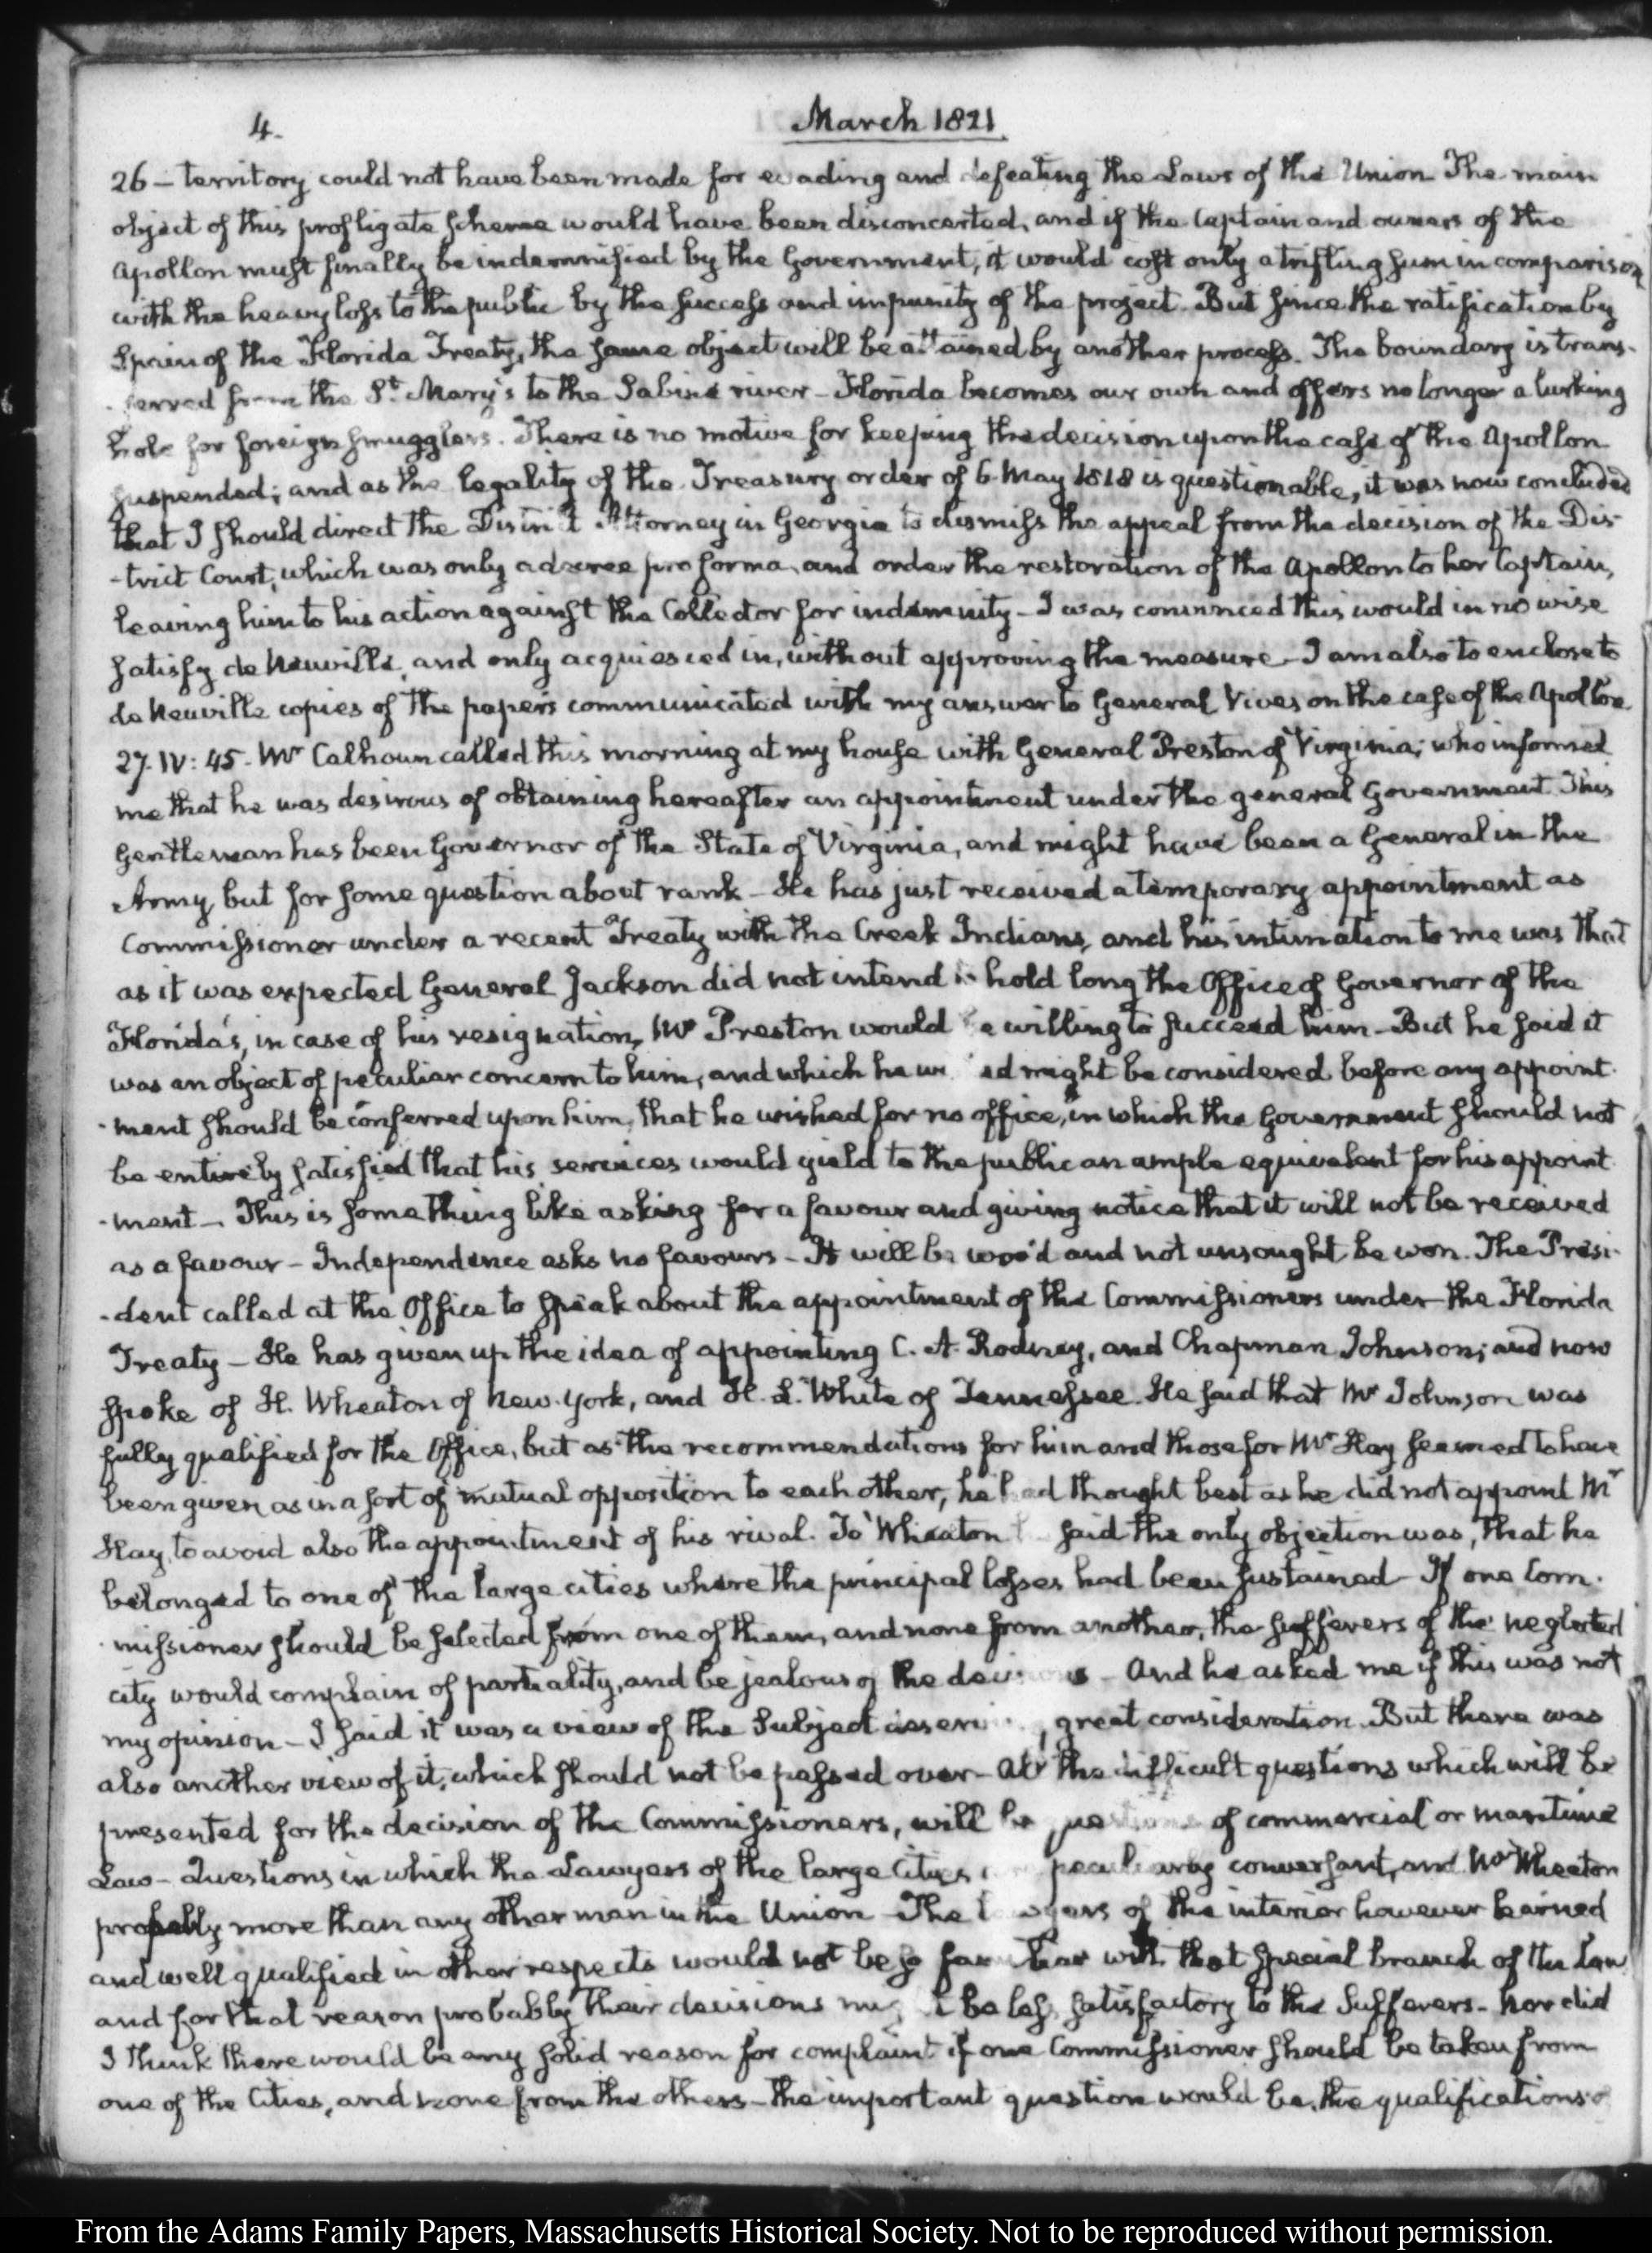 4.
March 1821
26 - territory could not have been made for evading and defeating the Laws of the Union The main
object of this profligate scheme would have been disconcerted, and if the Captain and owners of the
Apollon must finally be indemnified by the Government, it would cost only a trifling sum in comparison
with the heavy loss to the public by the success and impunity of the project. But since the ratification by
Spain of the Florida Treaty, the same object will be attained by another process. The boundary is trans-
-ferred from the St. Mary's to the Sabine river - Florida becomes our own and offers no longer a lurking
hole for foreign smugglers. There is no motive for keeping the decision upon the case of the Apollon
suspended; and as the legality of the Treasury order of 6 May 1818 is questionable, it was now concluded
that I should direct the District Attorney in Georgia to dismiss the appeal from the decision of the Dis-
-trict Court, which was only a decree pro forma, and order the restoration of the Apollon to her Captain,
leaving him to his action against the Collector for indemnity - I was convinced this would in no wise
satisfy de Neuville, and only acquiesced in, without approving the measure - I am also to enclose to
de Neuville copies of the papers communicated with my answer to General Vives on the case of the Apollon.
27. IV: 45. Mr Calhoun called this morning at my house with General Preston of Virginia; who informed
me that he was desirous of obtaining hereafter an appointment under the general Government. This
Gentleman has been Governor of the State of Virginia, and might have been a General in the
Army, but for some question about rank - He has just received a temporary appointment as
Commissioner under a recent Treaty with the Creek Indians, and his intimation to me was that
as it was expected General Jackson did not intend to hold long the Office of Governor of the
Florida's, in case of his resignation, Mr Preston would be willing to succeed him - But he said it
was an object of peculiar concern to him, and which he wished might be considered before any appoint-
-ment should be conferred upon him, that he wished for no office, in which the Government should not
be entirely satisfied that his services would yield to the public an ample equivalent for his appoint-
-ment - This is something like asking for a favour and giving notice that it will not be received
as a favour - Independence asks no favours - It will be woo'd and not unsought be won. The Presi-
-dent called at the Office to speak about the appointment of the Commissioners under the Florida
Treaty - He has given up the idea of appointing C. A. Rodney, and Chapman Johnson; and now
spoke of H. Wheaton of New-York, and H. L. White of Tennessee. He said that Mr Johnson was
fully qualified for the Office, but as the recommendations for him and those for Mr Hay seemed to have
been given as in a sort of mutual opposition to each other, he had thought best as he did not appoint Mr
Hay, to avoid also the appointment of his rival. To Wheaton he said the only objection was, that he
belonged to one of the large cities where the principal losses had been sustained - If one Com-
-missioner should be selected from one of them, and none from another, the sufferers of the neglected
city would complain of partiality, and be jealous of the decisions - And he asked me if this was not
my opinion - I said it was a view of the Subject deserving great consideration. But there was
also another view of it, which should not be passed over - All the difficult questions which will be
presented for the decision of the Commissioners, will be questions of commercial or maritime
Law - Questions in which the Lawyers of the large Cities are peculiarly conversant, and Mr Wheaton
probably more than any other man in the Union - The lawyers of the interior however learned
and well qualified in other respects would not be so familiar with that special branch of the Law
and for that reason probably their decisions might be less satisfactory to the Sufferers - Nor did
I think there would be any solid reason for complaint if one Commissioner should be taken from
one of the Cities, and none from the others - the important question would be, the qualifications of
From the Adams Family Papers, Massachusetts Historical Society. Not to be reproduced without permission.